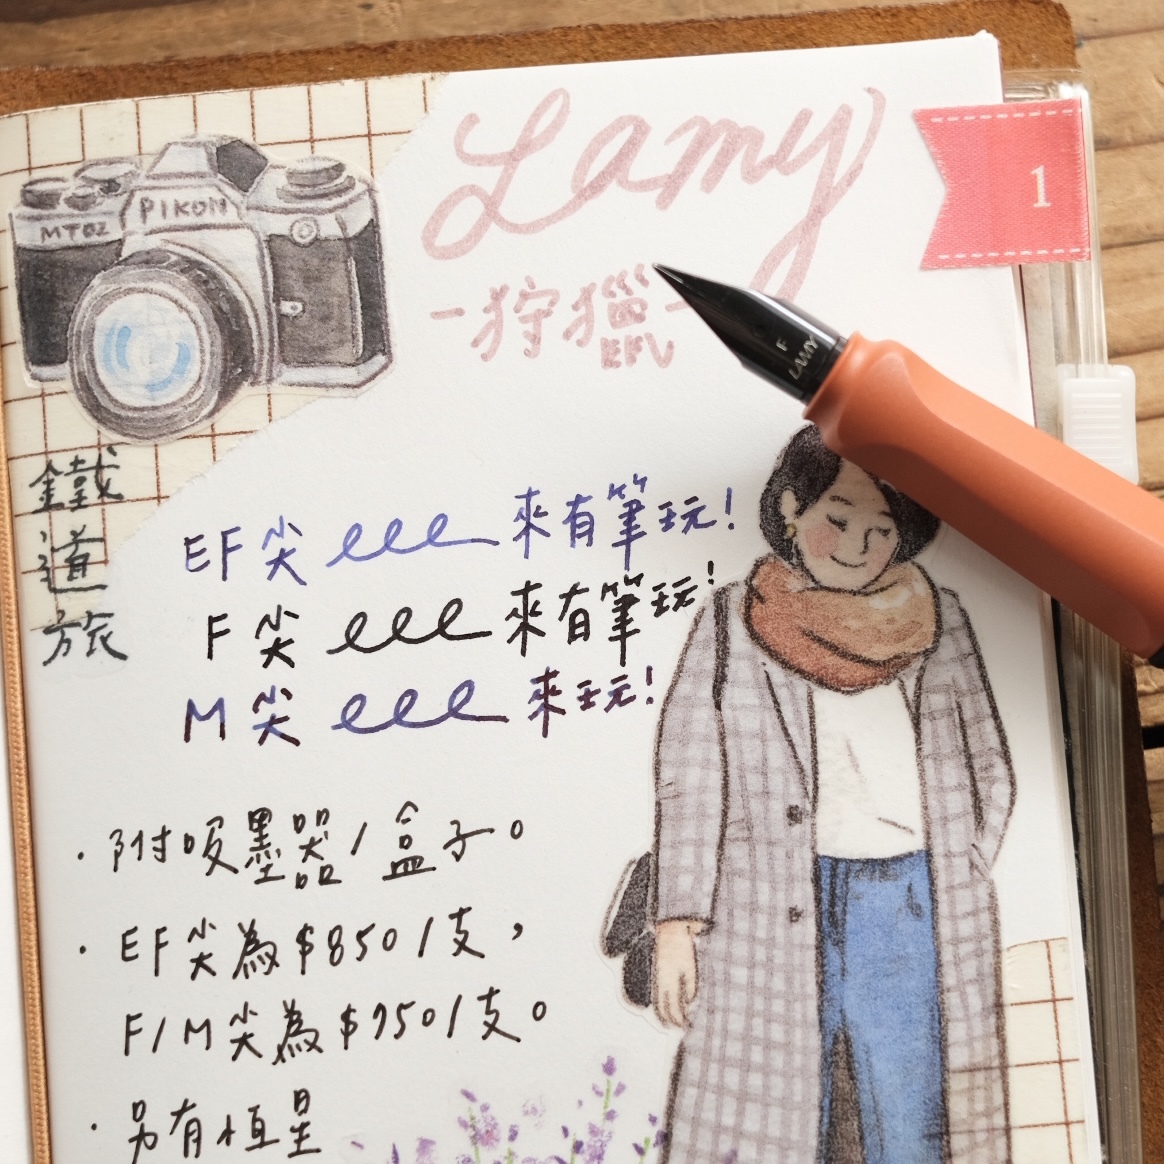 Lamy
1
PIKON
MTOZ
-狩獵-
EFV
F
LAMY
鐵道旅
EF 尖 lll 來有筆玩!
F 尖 lll 來有筆玩!
M 尖 lll 來玩!
· 附吸墨器/盒子。
· EF 尖為 $850/支,
F/M 尖為 $950/支。
· 另有恆星